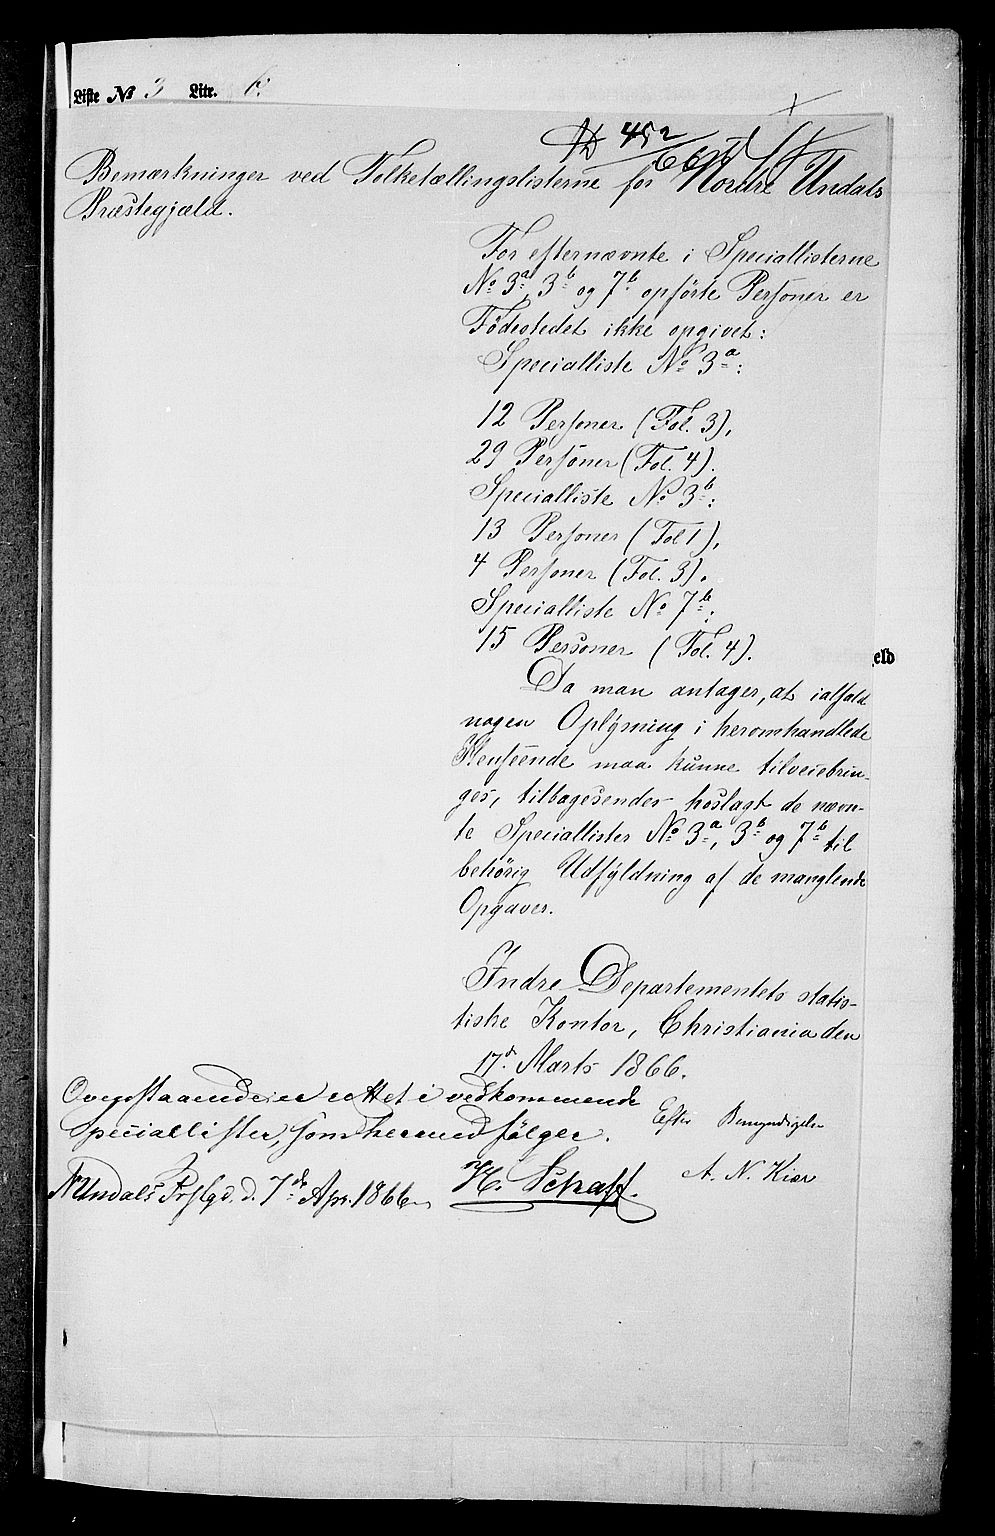 Liste № 3 Litr. b.
452
Bemærkninger ved Folketællingslisterne for Nordre Undals
Præstegjæld.
For efternævnte i Speciallisterne
No 3a, 3b og 7b opførte Personer er
Fødestedet ikke opgivet:
Specialliste No 3a:
12 Personer (Fol. 3),
29 Personer (Fol. 4).
Specialliste No 3b:
13 Personer (Fol 1),
4 Personer (Fol. 3).
Specialliste No 7b:
15 Personer (Fol. 4).
eld
Da man antager, at ialfald
nogen Oplysning i heromhandlede
Henseende maa kunne tilveiebrin-
ges, tilbagesendes hoslagt de nævn-
te Speciallister No 3a, 3b og 7b til
behörig Udfyldning af de manglende
Opgaver.
Indre Departementets statis-
tiske Kontor, Christiania den
17d Marts 1866.
Efter Bemyndigelse
A. N. Kiær
Ovenstaaende er rettet i vedkommende
Speciallister, som hermed følger.
N Undals Prstgd. d. 7de Apr. 1866
H. Schaff.